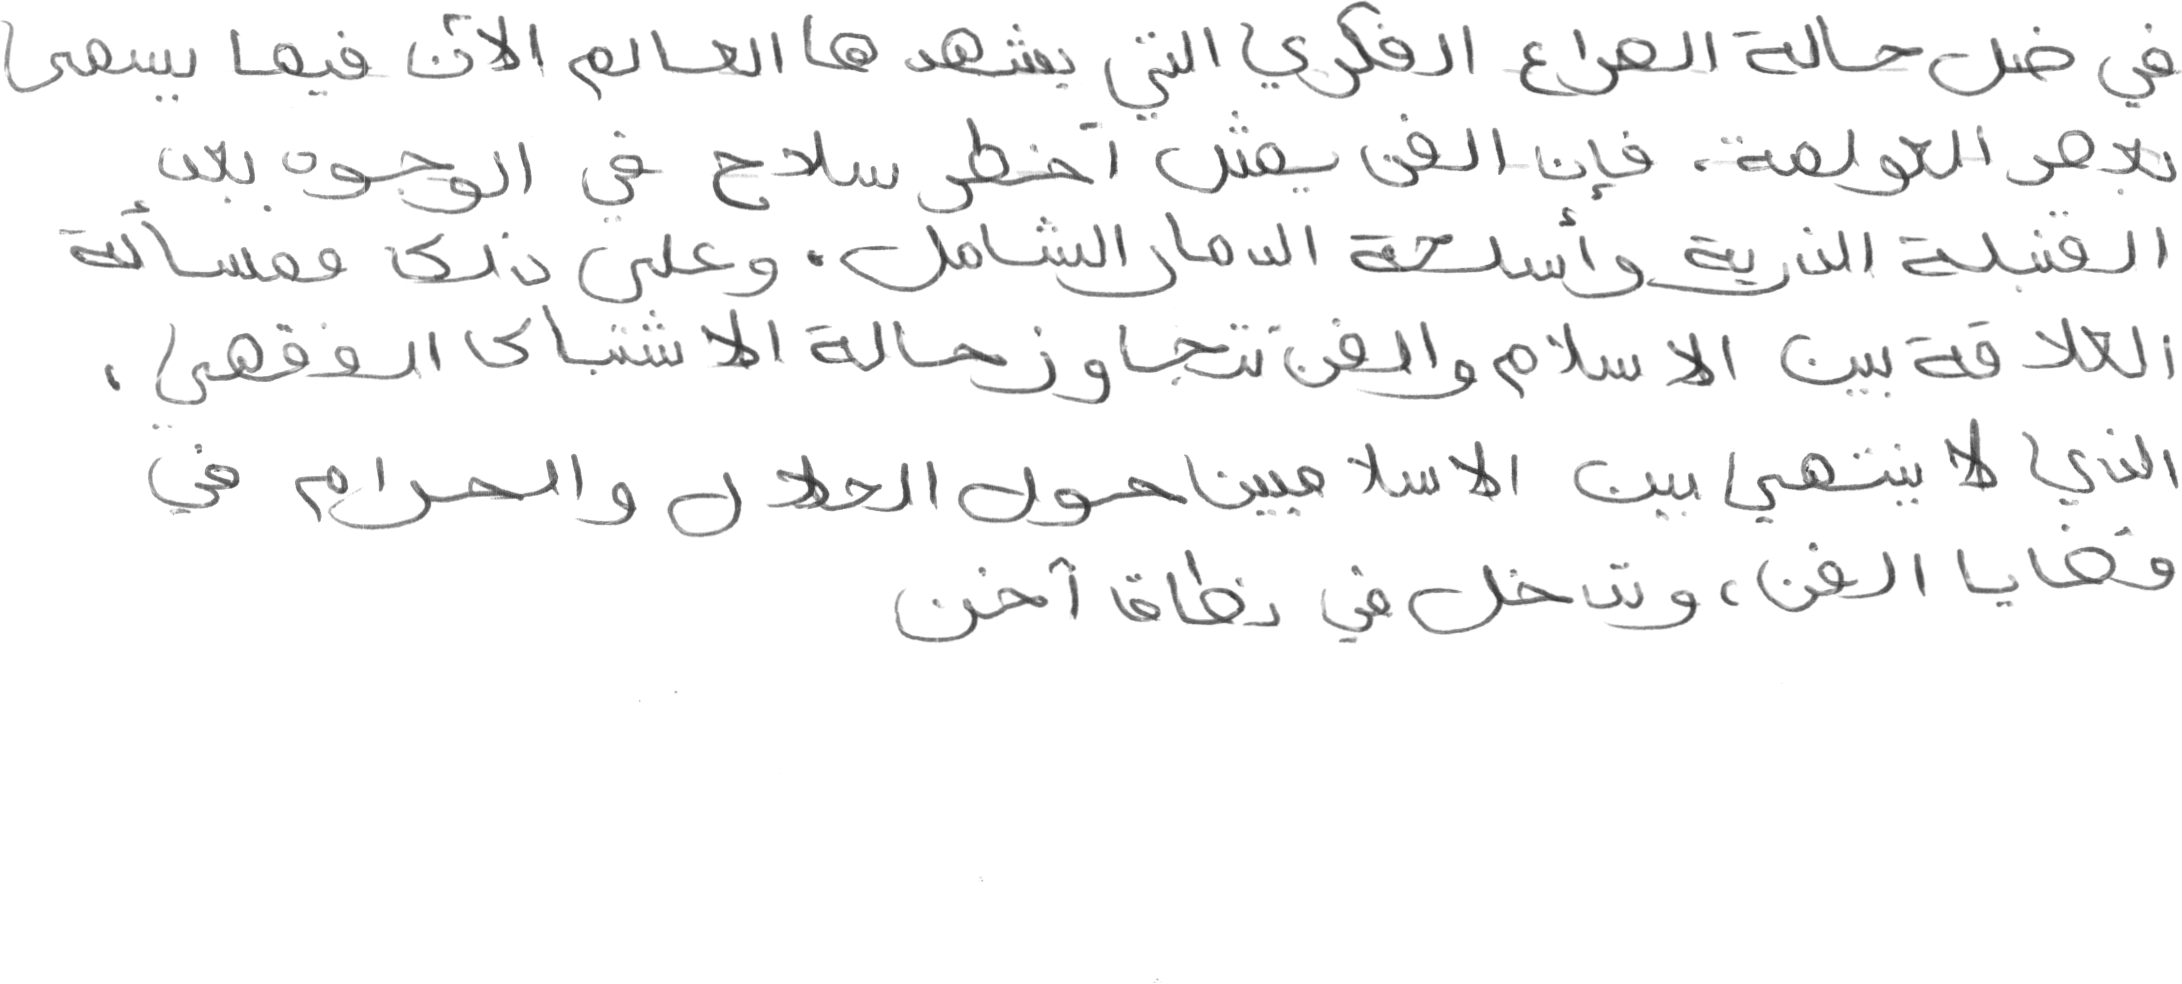 في ضل حالة الصراع الفكري التي يشهدها العالم الآن فيما يسمى
بعصر العولمة، فإن الفن يمثل أخطر سلاح في الوجود بعد
القنبلة الذرية وأسلحة الدمار الشامل. وعلى ذلك فمسألة
العلاقة بين الاسلام والفن تتجاوز حالة الاشتباك الفقهي،
الذي لا ينتهي بين الاسلاميين حول الحلال والحرام في
قضايا الفن، وتدخل في نطاق آخر